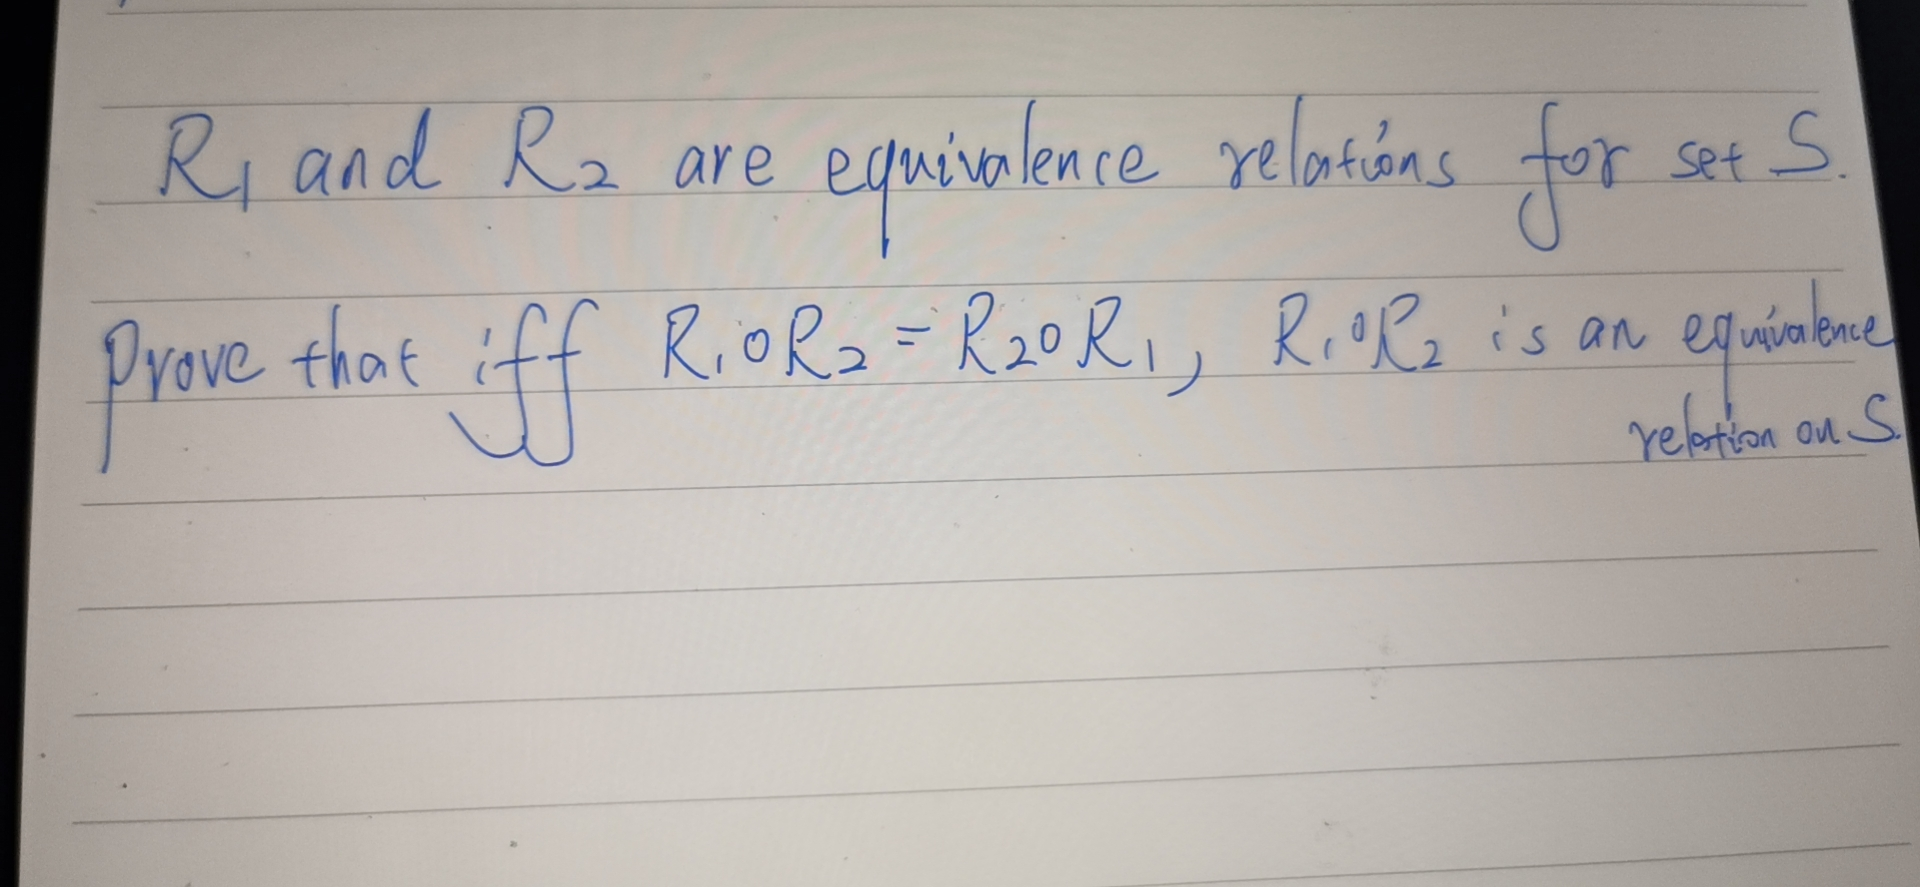 R₁ and R₂ are equivalence relations for set S.
Prove that iff R₁∘R₂ = R₂∘R₁, R₁∘R₂ is an equivalence
relation on S.